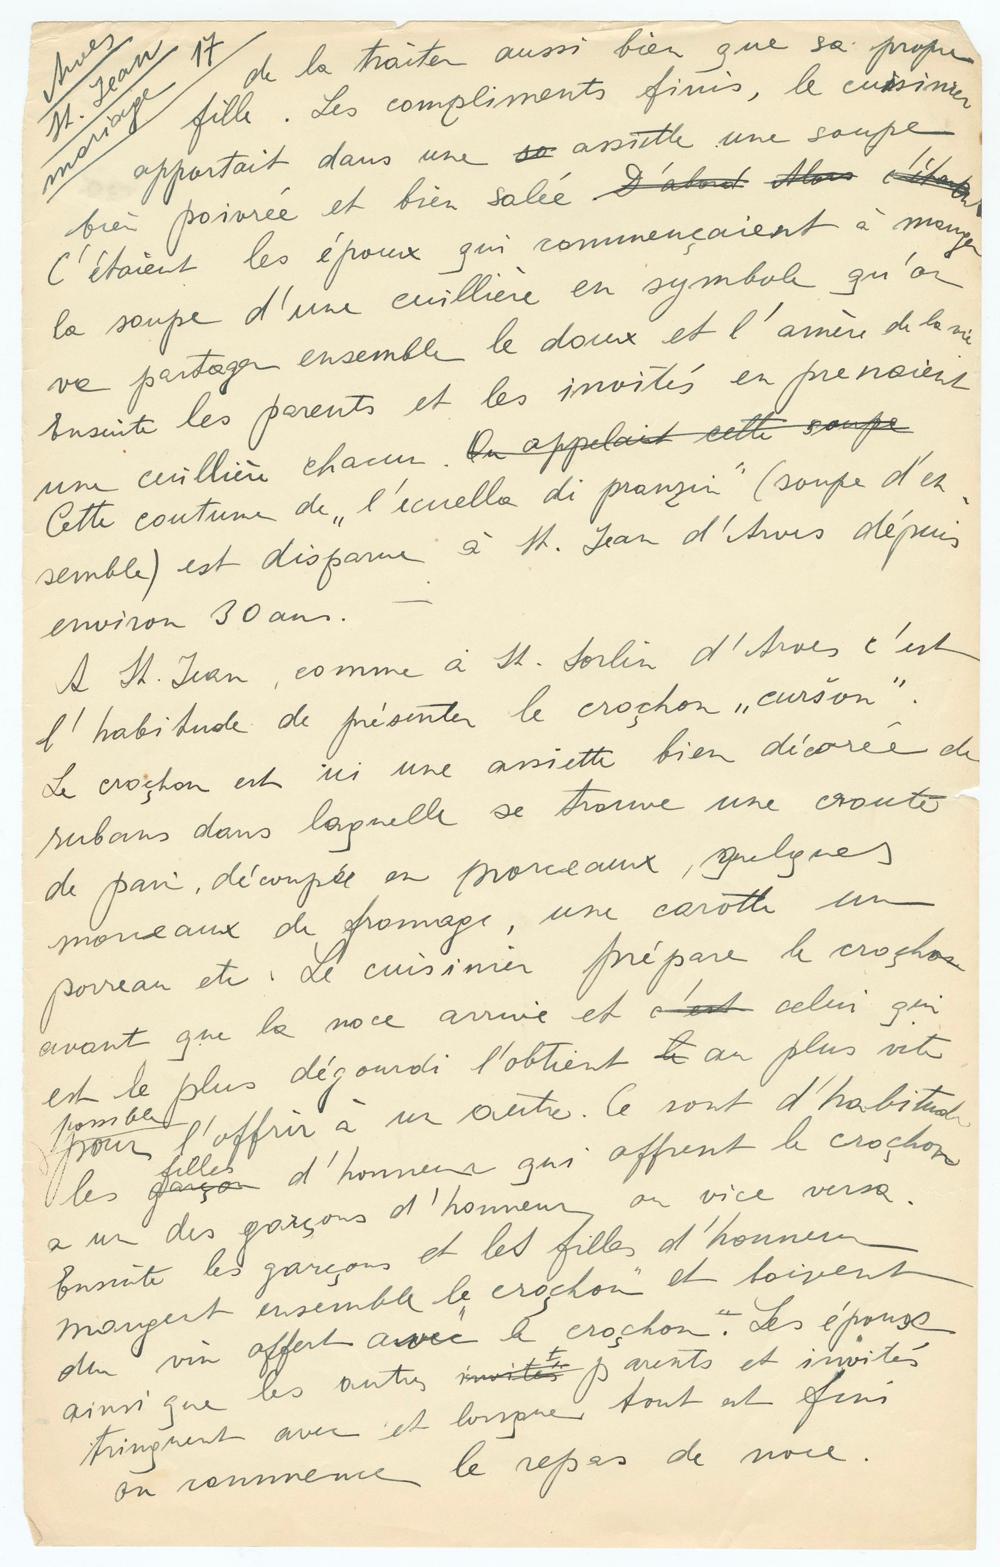 Arves
St. Jean
mariage
17
de la traiter aussi bien que sa propre
fille. Les compliments finis, le cuisinier
apportait dans une sa assiette une soupe
bien poivrée et bien salée D'abord Alors c'étaient
C'étaient les époux qui commençaient à manger
la soupe d'une cuillière en symbole qu'on
va partager ensemble le doux et l'amère de la vie
Ensuite les parents et les invités en prenaient
une cuillière chacun. On appelait cette soupe
Cette coutume de „l'ecuella di pranzin" (soupe d'en-
semble) est disparue à St. Jean d'Arves dépuis
environ 30 ans. —
A St. Jean, comme à St. Sorlin d'Arves c'est
l'habitude de présenter le croçhon „curšon".
Le croçhon est ici une assiette bien décorée de
rubans dans laquelle se trouve une croute
de pain, découpée en morceaux, quelques
morceaux de fromage, une carotte un
porreau etc. Le cuisinier prépare le croçhon
avant que la noce arrive et c'est celui qui
est le plus dégourdi l'obtient le au plus vite
possible
pour l'offrir à un autre. Ce sont d'habitude
filles
les garçon d'honneur qui offrent le croçhon
a un des garçons d'honneur, ou vice versa.
Ensuite les garçons et les filles d'honneur
mangent ensemble le „croçhon" et boivent
du vin offert avec le „croçhon". Les époux
ainsi que les autres invités parents et invités
trinquent avec et lorsque tout est fini
on commence le repas de noce.